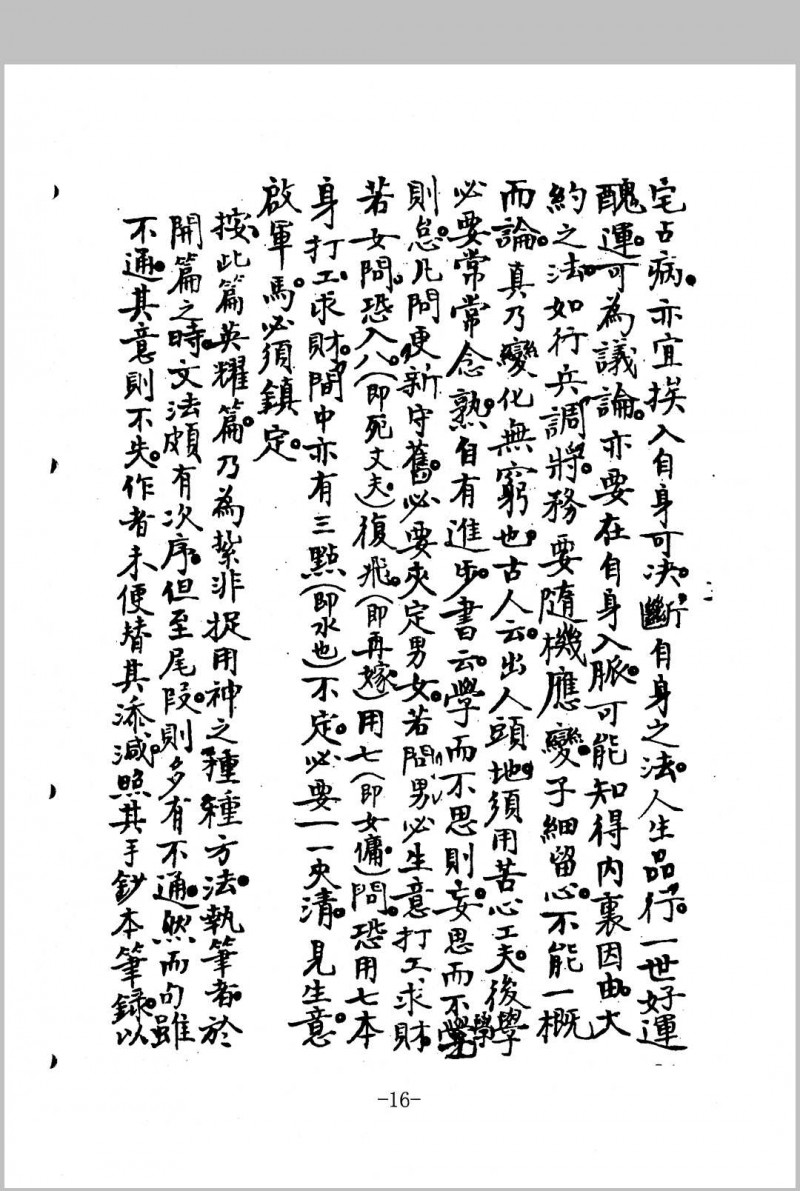 宅占病。亦宜挨入自身可決。斷自身之法。人生品行。一世好運
醜運。可為議論。亦要在自身入脈。可能知得內裏因由。大
約之法。如行兵調將。務要隨機應變。子細留心。不能一概
而論。真乃變化無窮也。古人云。出人頭地。須用苦心工夫。後學
必要常常念熟。自有進步。書云。學而不思則妄。思而不學
則怠。凡問便新守舊。必要夾定男女。若問男必生意打工求財。
若女問。恐入八(即死丈夫)。復飛。(即再嫁)用七(即女傭)問。恐用七本
身打工求財。間中亦有三點(即水也)不定。必要一一夾清。見生意
啟軍馬。必須鎮定。
按。此篇英耀篇。乃為紮非捉用神之種種方法。執筆者。於
開篇之時。文法頗有次序。但至尾段。則多有不通。然而句雖
不通。其意則不失。作者未便替其添減。照其手鈔本筆錄。以
-16-